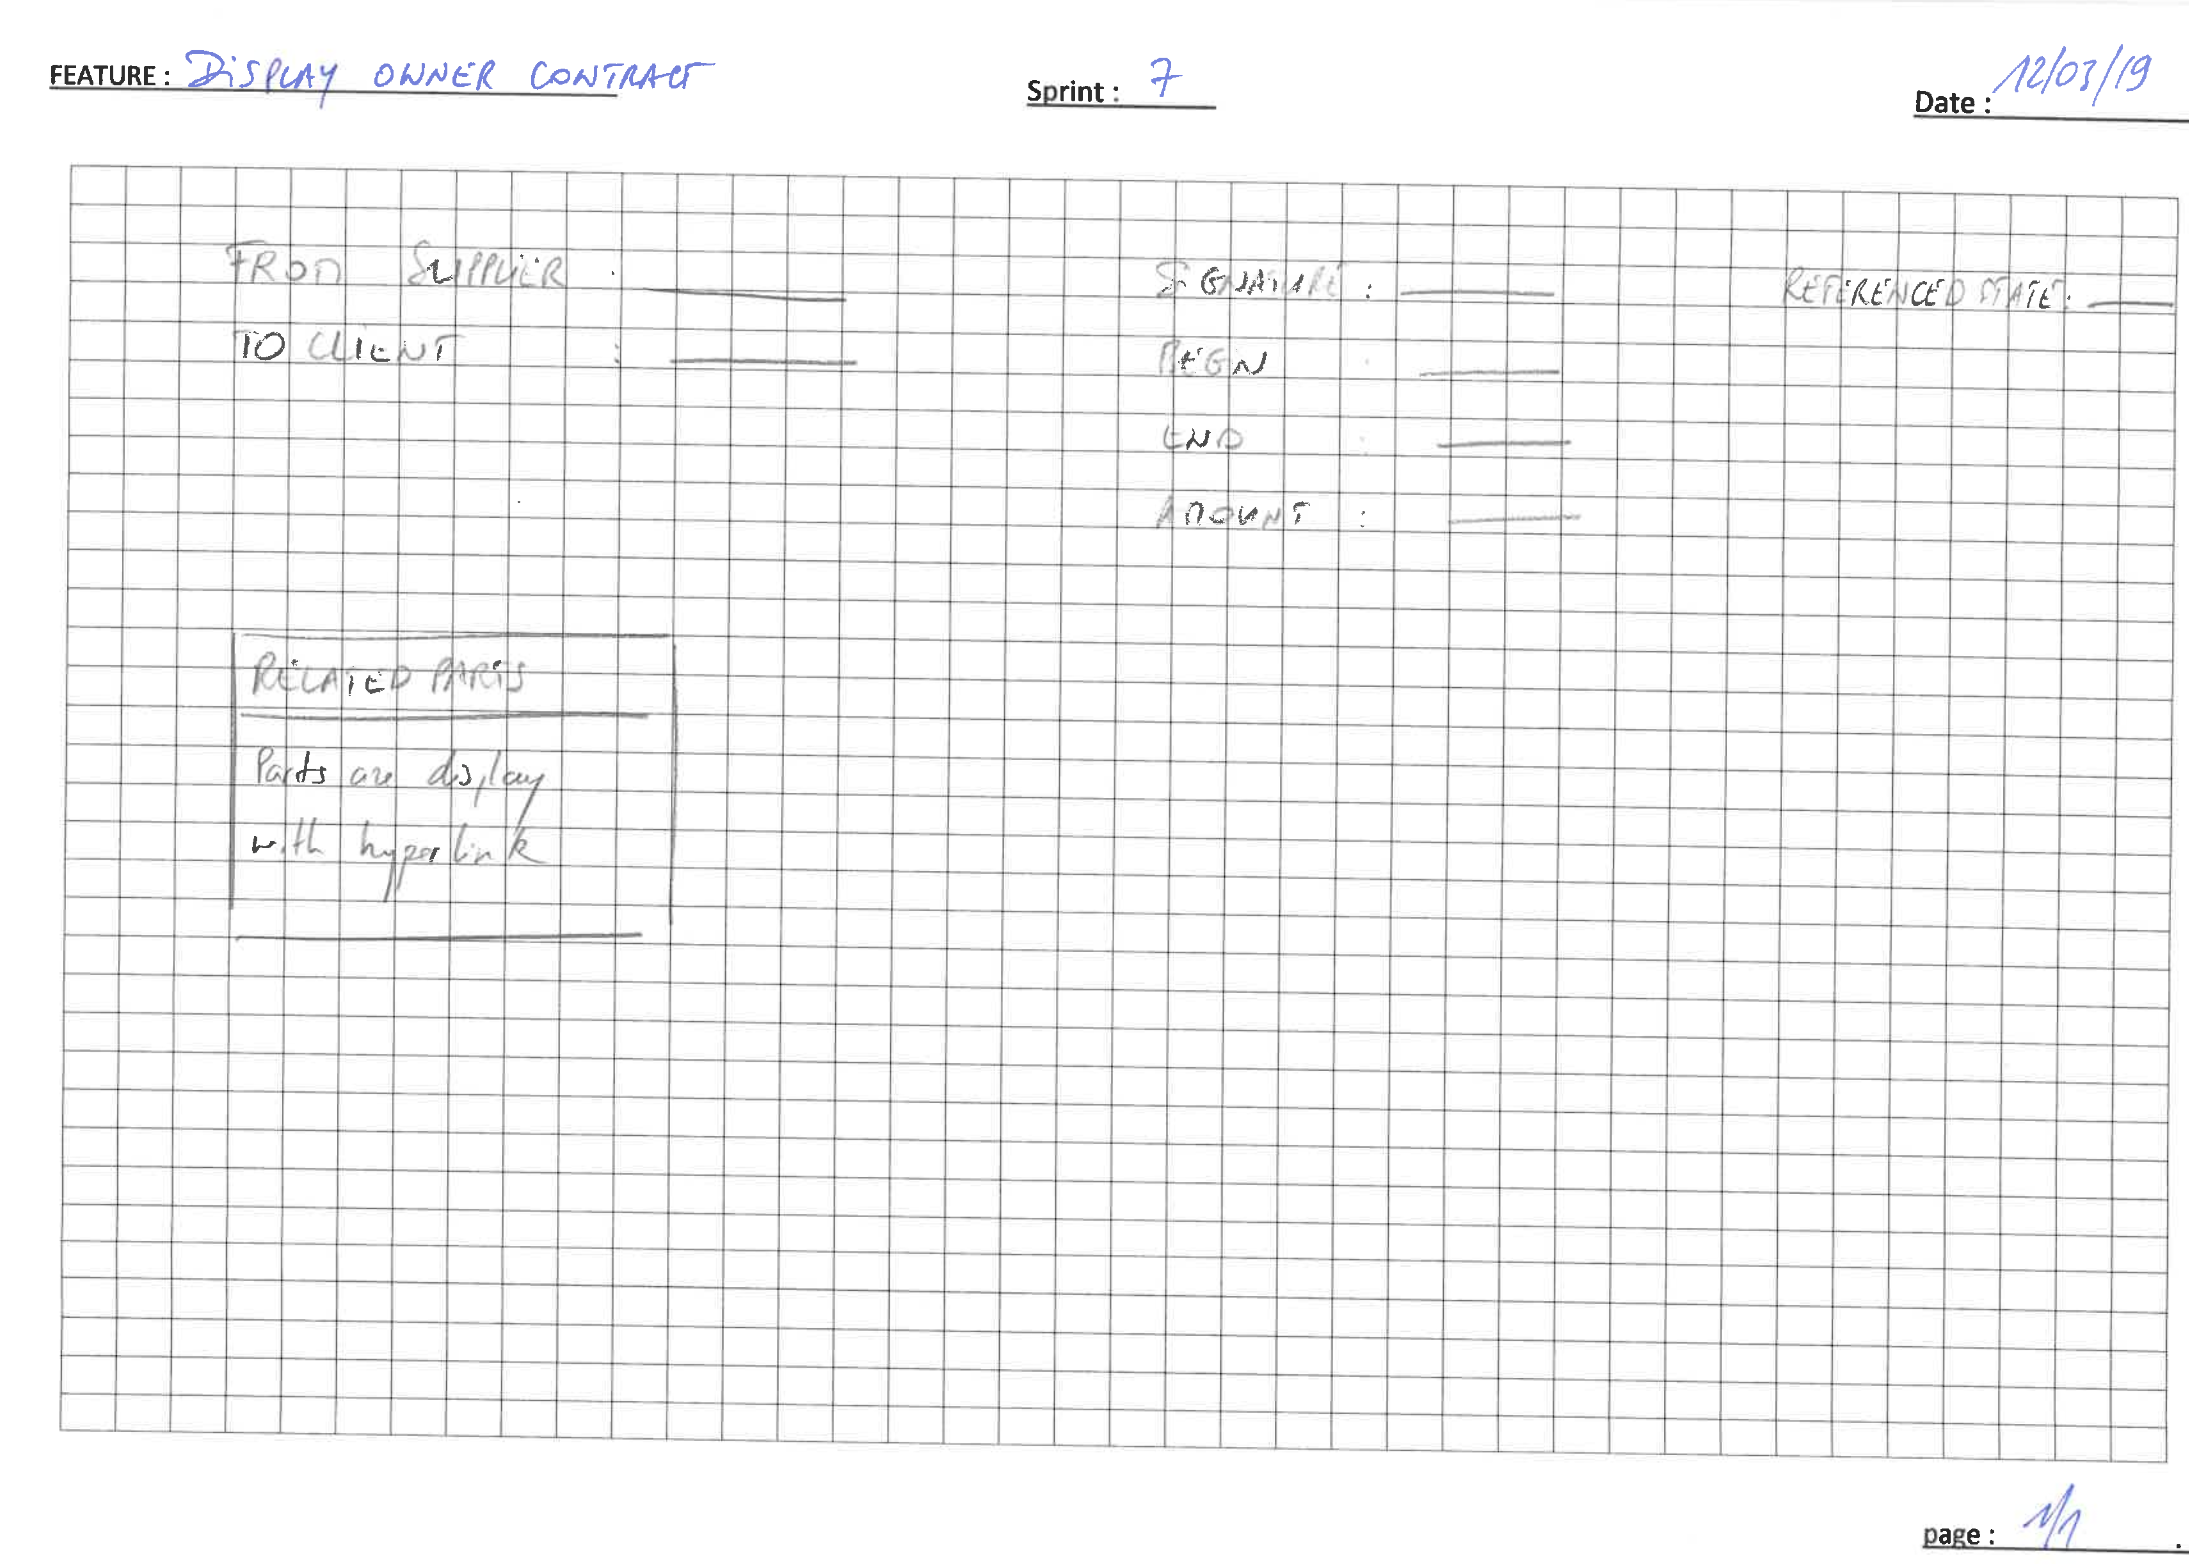 FEATURE : DISPLAY OWNER CONTRACT
Sprint : 7
Date : 12/03/19
FROM SUPPLIER :
SIGNATURE :
REFERENCED STATE :
TO CLIENT :
BEGIN :
END :
AMOUNT :
RELATED PARTS
Parts are display
with hyperlink
page : 1/1